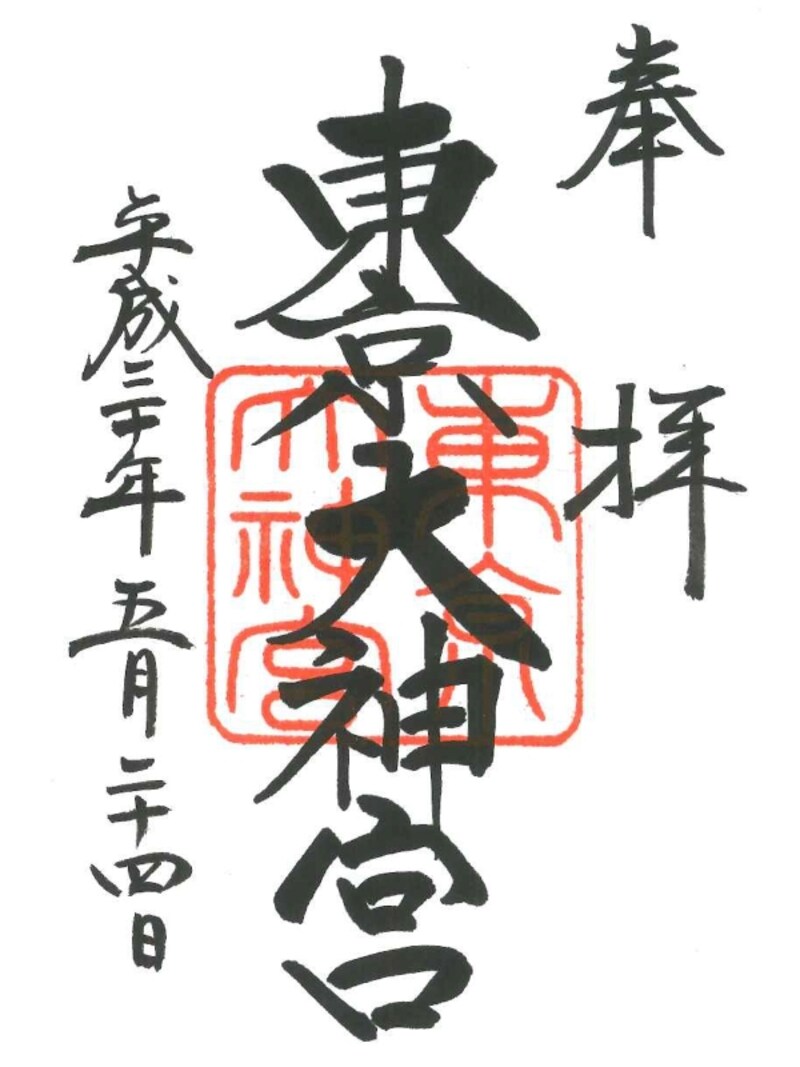 奉拝
東京大神宮
東京
大神宮
平成三十年五月二十四日